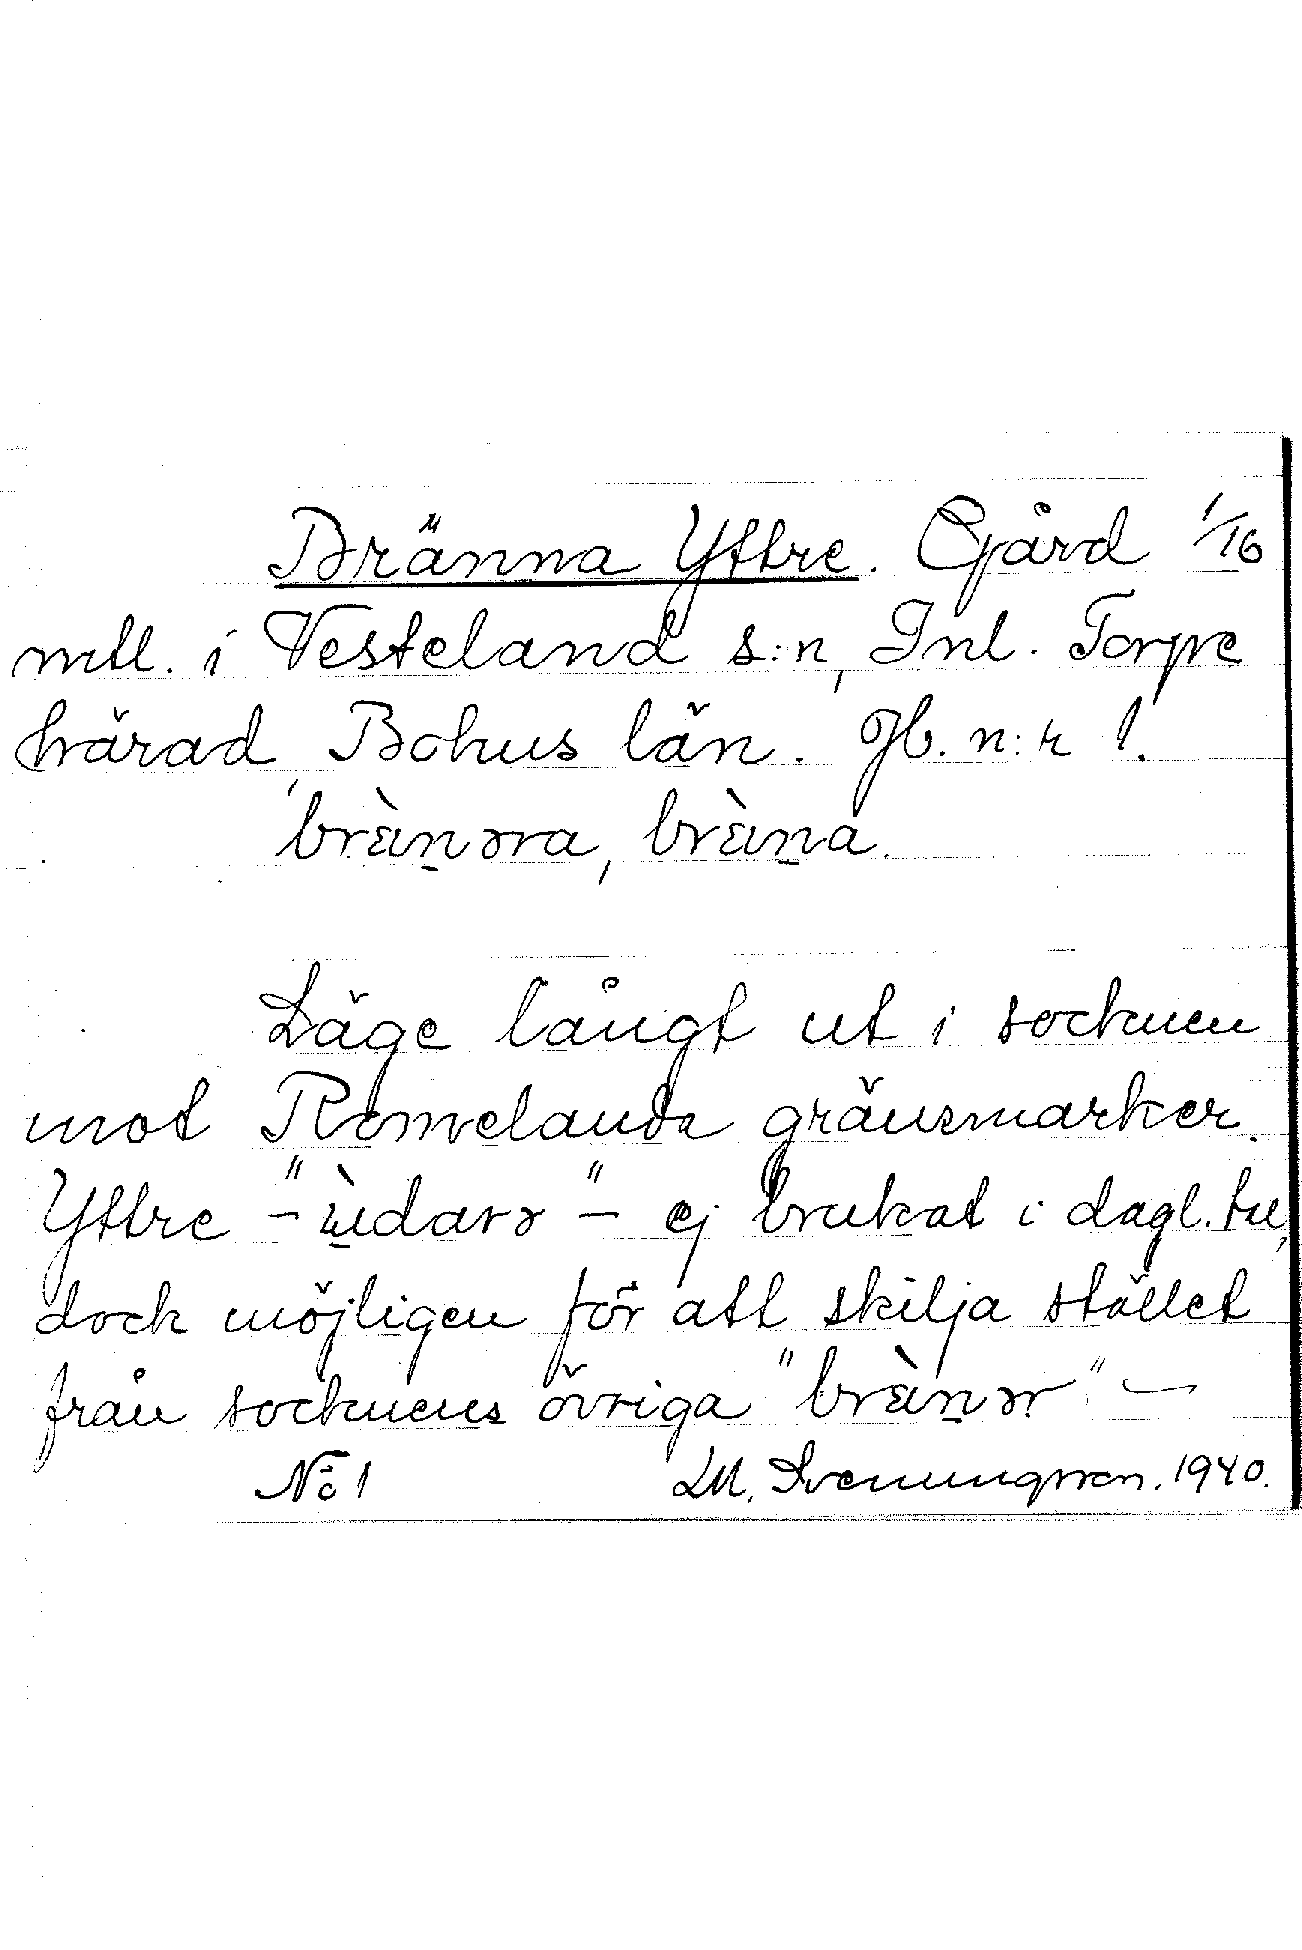 Bränna Yttre. Gård 1/16
mtl. i Vesteland s:n, Inl. Torpe
härad, Bohus län. Jb. n:r 1.
brὲn̠ɘra, brὲn̠a.
Läge långt ut i socknen
mot Romelanda gränsmarker.
Yttre – "ùdarɘ" – ej brukat i dagl. tal,
dock möjligen för att skilja stället
från socknens övriga "brὲn̠ɘr" –
No 1 LM. Svenungsson. 1940.